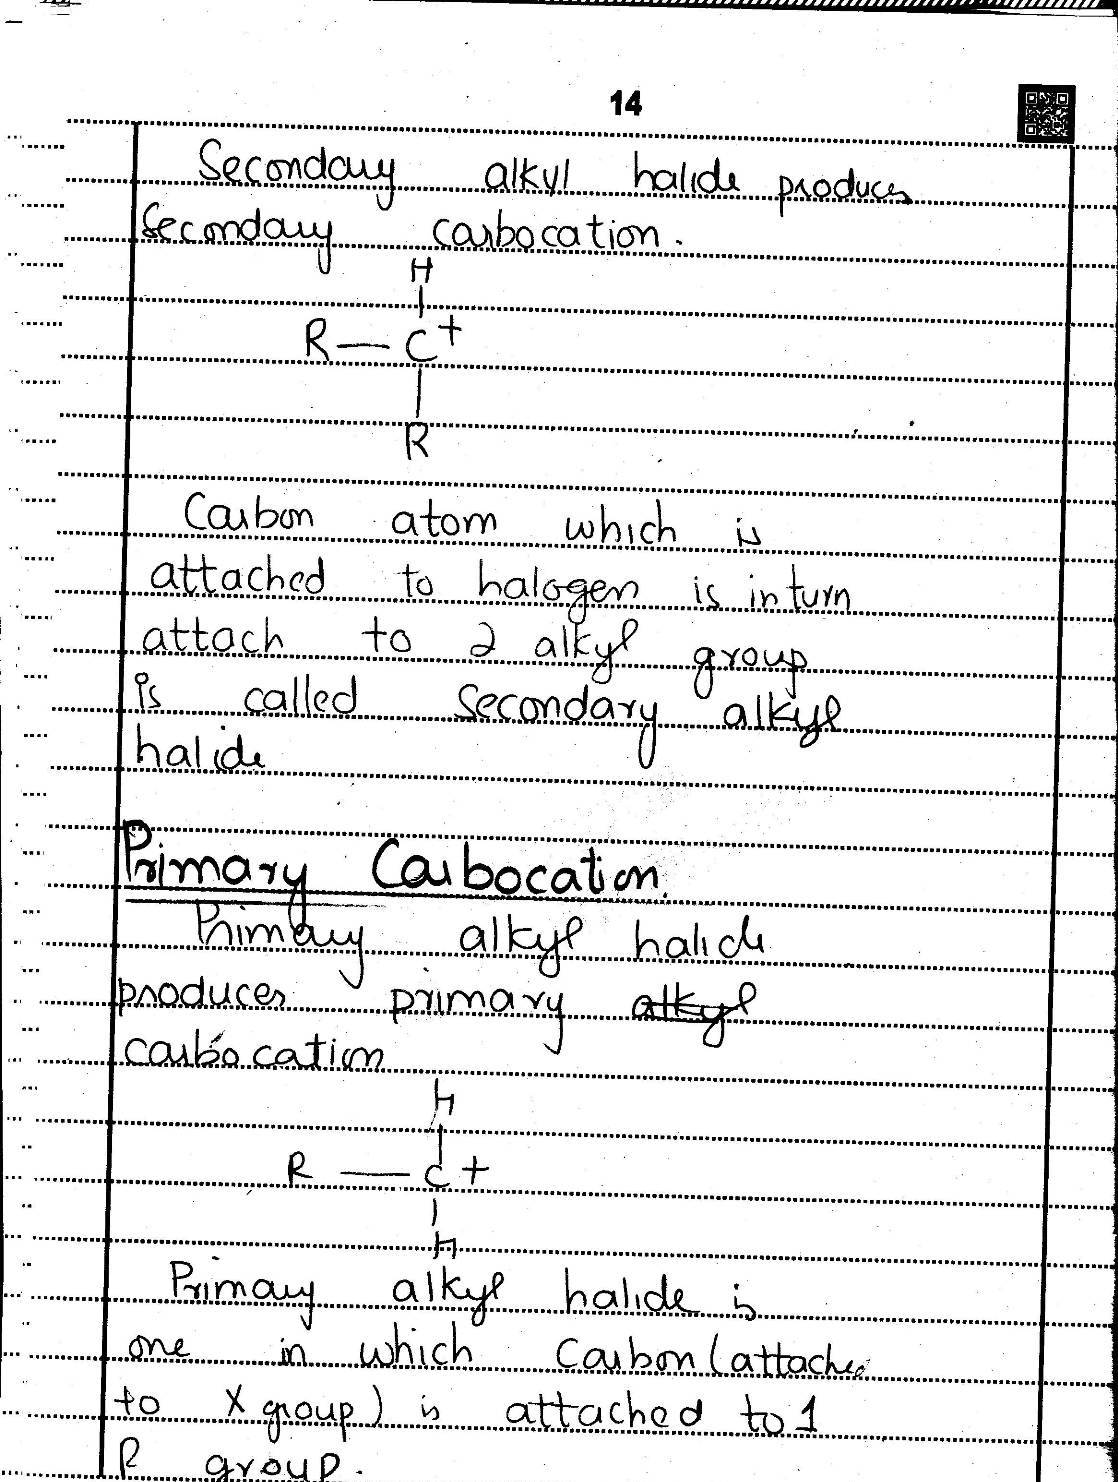 14
Secondary alkyl halide produces
Secondary carbocation.
H
|
R — C+
|
R
Carbon atom which is
attached to halogen is in turn
attach to 2 alkyl group
is called secondary alkyl
halide
Primary Carbocation.
Primary alkyl halide
produces primary alkyl
carbocation
H
|
R — C +
|
H
Primary alkyl halide is
one in which Carbon (attached
to X group) is attached to 1
R group.